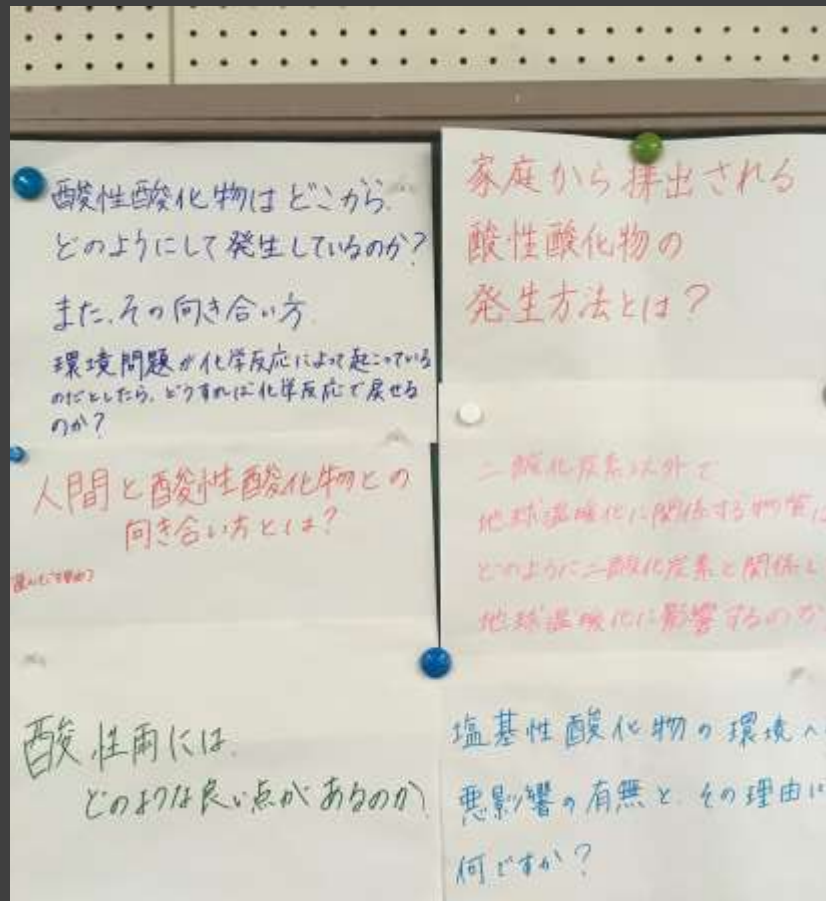 酸性酸化物はどこから、
どのようにして発生しているのか？
また、その向き合い方
環境問題が化学反応によって起こっている
のだとしたら、どうすれば化学反応で戻せる
のか？
人間と酸性酸化物との
向き合い方とは？
酸性雨には
どのような良い点があるのか
家庭から排出される
酸性酸化物の
発生方法とは？
二酸化炭素以外で
地球温暖化に関係する物質は
どのように二酸化炭素と関係し
地球温暖化に影響するのか
塩基性酸化物の環境へ
悪影響の有無と、その理由は
何ですか？